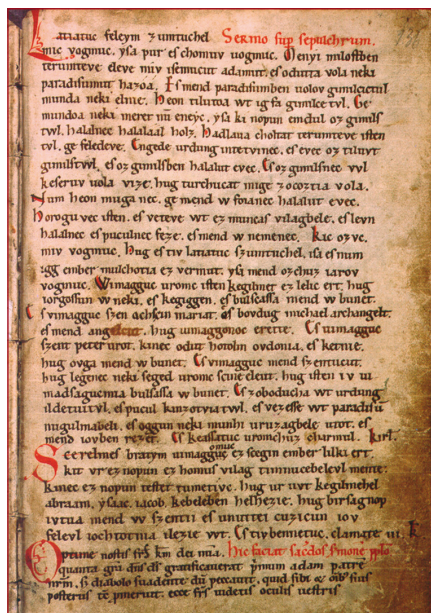 Latiatuc feleym zumtuchel Sermo sup sepulchrum.
mic vogmuc. ysa pur es chomuv uogmuc. Menyi milostben
terumteve eleve miv isemucut adamut. es odutta vola neki
paradisumut hazoa. Es mend paradisumben uolov gimilcictul
munda neki elnie. Heon tilutoa wt ig fa gimilce tvl. Ge
mundoa neki meret nū eneyc. ysa ki nopun emdul oz gimils
tvl. halalnec halalaal holz. Hadlaua choltat terumteve isten
tvl. ge feledeve. Engede urdung intetvinec. es evec oz tiluvt
gimilstvl. es oz gimilsben halalut evec. Es oz gimilsnec vvl
keseruv uola vize. hug turchucat mige zocoztia vola.
Num heon muga nec. ge mend w foianec halalut evec.
Horogu vec isten. es veteve wt ez muncas vilagbele. es levn
halalnec es puculnec feze. es mend w nemenec. Kic oz vc.
miv vogmuc. Hug es tiv latiatuc szumtuchel. isa es num
igg ember mulchotia ez vermut. ysa mend ozchuz iarov
vogmuc. Wimagguc uromc isten kegilmet ez lelic ert. hug
iorgossun w neki. es kegiggen. es bulsassa mend w bunet.
Es vimagguc szen achscin mariat. es bovdug michael archangelt.
es mend angelcut. hug uimaggonoc erette. Es uimagguc
szent peter urot. kinec odut hotolm ovdonia. es ketnie.
hug ovga mend w bunet. Es vimagguc mend szentucut.
hug legenec neki seged uromc scine eleut. hug isten iv ui
madsagucmia bulsassa w bunet. Es zoboducha wt urdung
ildetuitvl. es pucul kinzotviatvl. es vezesse wt paradisū
nugulmabeli. es oggun neki munhi uruzagbele utot. es
mend iovben rezet. Es keassatuc uromchuz charmul. Kirl.
Scerelmes bratym uimagguc omuc ez scegin ember lilki ert.
kit vr ez nopun ez homus vilag timnucebelevl mente.
kinec ez nopun testet tumetivc. hug ur uvt kegilmehel
abraam. ysaac. iacob. kebeleben helhezie. hug birsagnop
ivtva mend w szentii es unuttei cuzicun iov
felevl iochtotnia ilezie wt. Es tivbennetuc. clamate iii. k